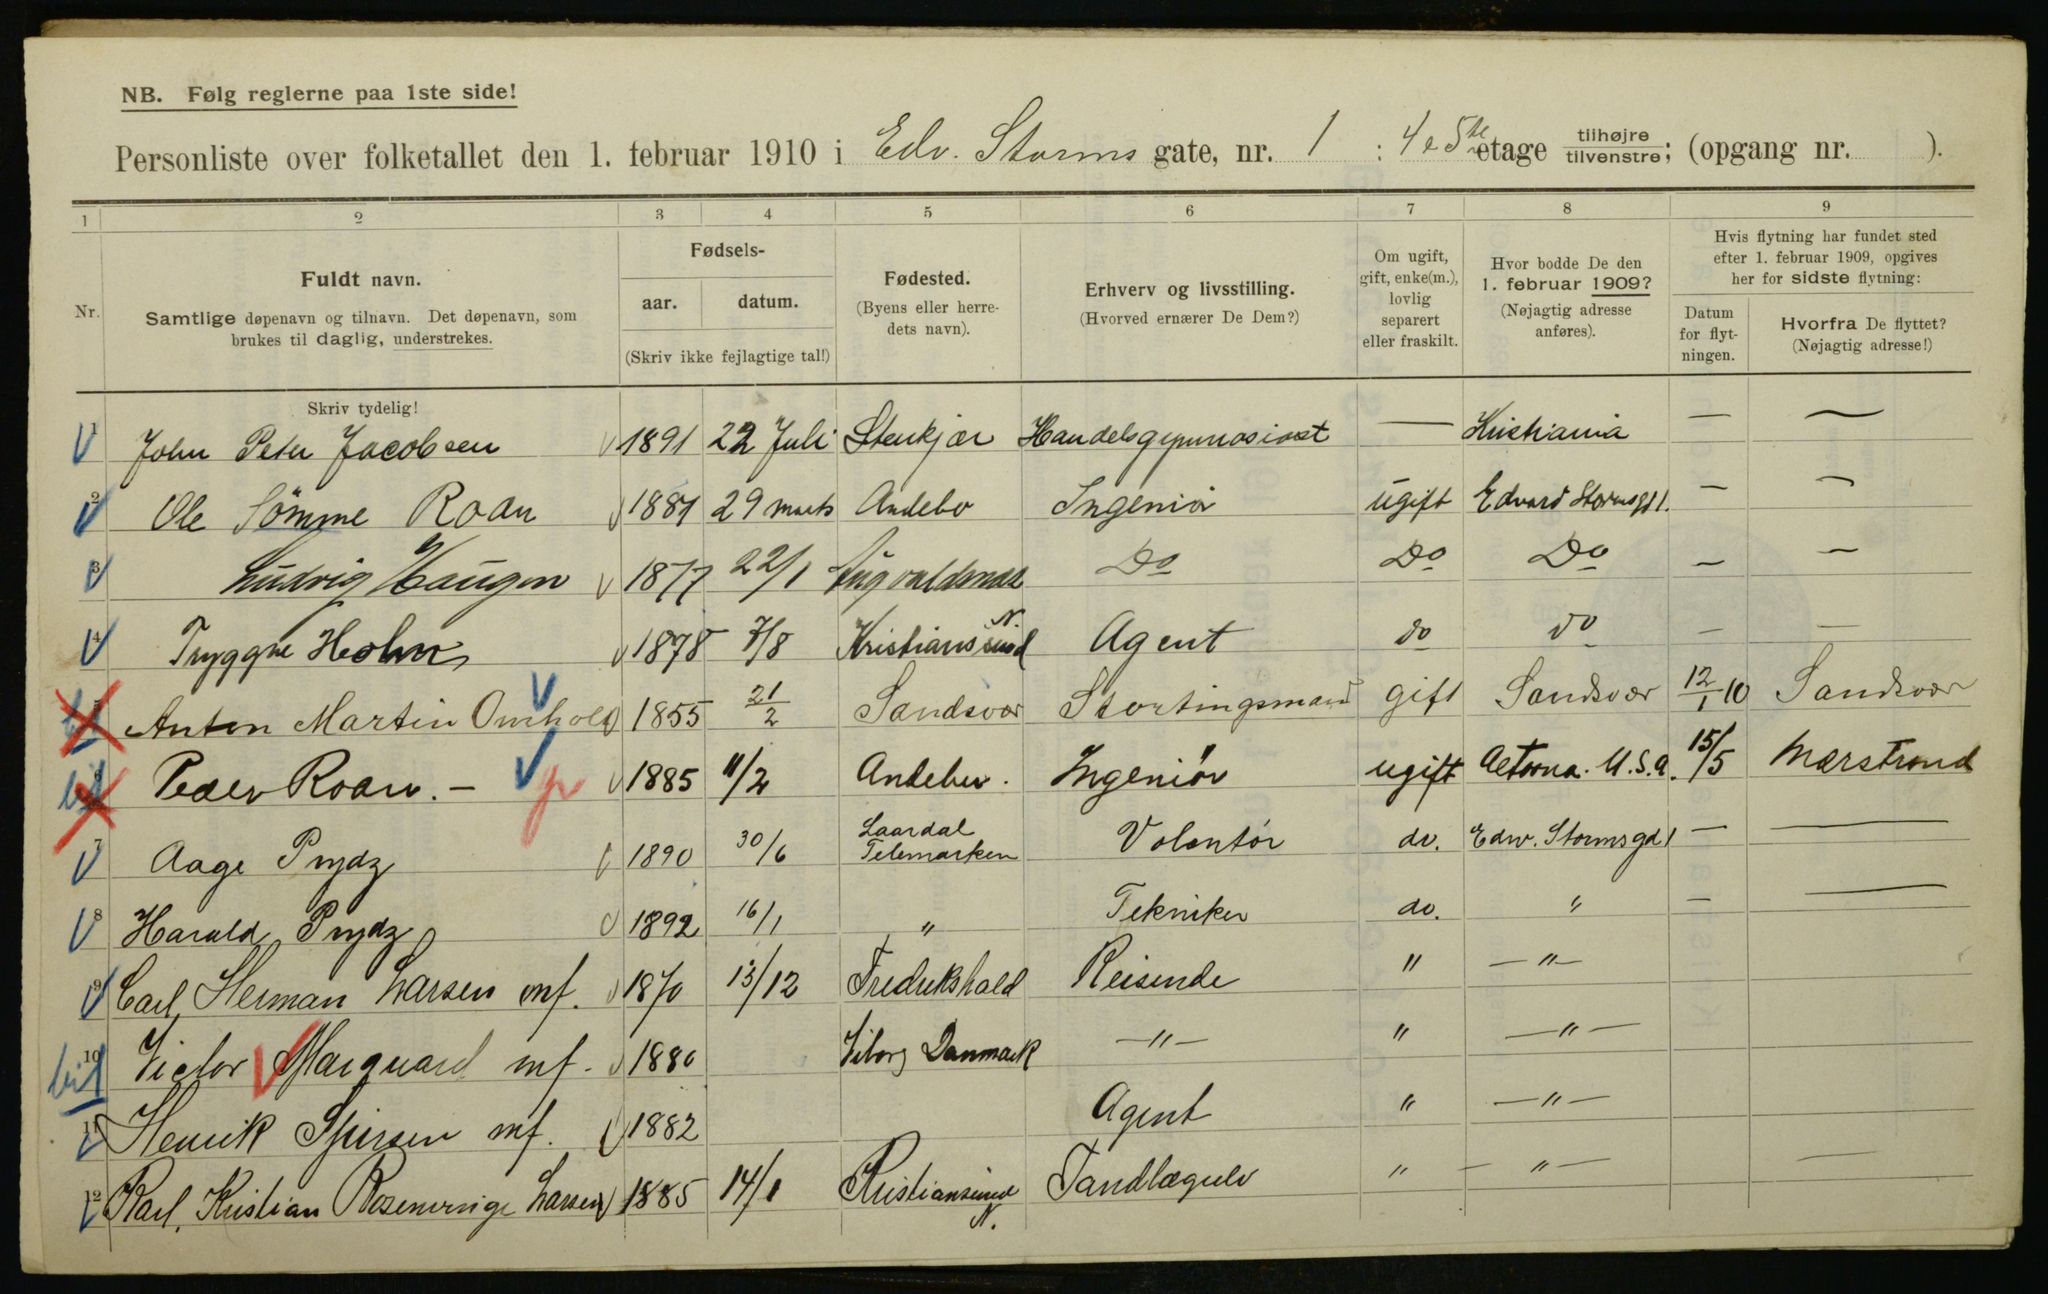 NB. Følg reglerne paa 1ste side!
Personliste over folketallet den 1. februar 1910 i Edv. Storms gate, nr. 1 : 4 e 5te etage tilhøjre tilvenstre; (opgang nr. ).
1 2 3 4 5 6 7 8 9
Nr.
Fuldt navn.
Samtlige døpenavn og tilnavn. Det døpenavn, som
brukes til daglig, understrekes.
Skriv tydelig!
Fødsels-
aar. datum.
(Skriv ikke fejlagtige tal!)
Fødested.
(Byens eller herre-
dets navn).
Erhverv og livsstilling.
(Hvorved ernærer De Dem?)
Om ugift,
gift, enke(m.),
lovlig
separert
eller fraskilt.
Hvor bodde De den
1. februar 1909?
(Nøjagtig adresse
anføres).
Hvis flytning har fundet sted
efter 1. februar 1909, opgives
her for sidste flytning:
Datum
for flyt-
ningen.
Hvorfra De flyttet?
(Nøjagtig adresse!)
1 John Peter Jacobsen 1891 22 Juli Stenkjær Handelsgymnasiast — Kristiania — —
2 Ole Sömme Roan 1881 29 marts Andebo Ingeniør ugift Edvard Stormsgd 1. — —
3 Ludvig Haugen 1877 22/1 Do Do Do — —
4 Tryggve Holm 1878 7/8 Kristianssund N. Agent do do — —
5 Anton Martin Omholt 1855 21/2 Sandsvær Stortingsmand gift Sandsvær 12/1 10 Sandsvær
6 Peder Roan. — 1885 11/2 Andebu. Ingeniør ugift U.S.A. 15/5 Marstrand
7 Aage Prydz 1890 30/6 Laardal Telemarken Volontør do. Edw. Stormsgd 1 — —
8 Harald Prydz 1892 16/1 " Tekniker do. " — —
9 Carl Herman Larsen mf. 1870 13/12 Fredrikshald Reisende " — " —
10 Victor Marquard mf. 1880 Viborg Danmark — " — " — " —
11 Henrik mf. 1882 Agent " — " —
12 Karl Kristian Rosenvinge Larsen 1885 14/1 Kristiansund N. Tandlægeelv " — " — —